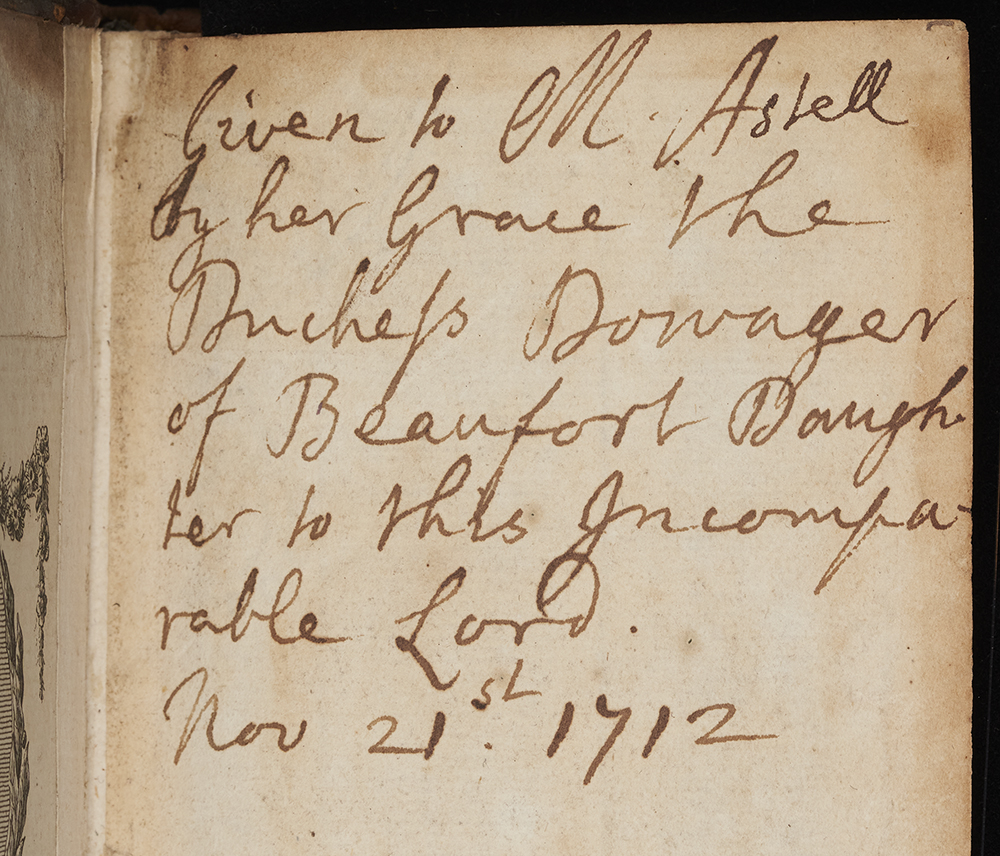 Given to M. Astell
by her Grace the
Duchess Dowager
of Beaufort Daugh-
ter to this Incompa-
rable Lord.
Nov 21st. 1712